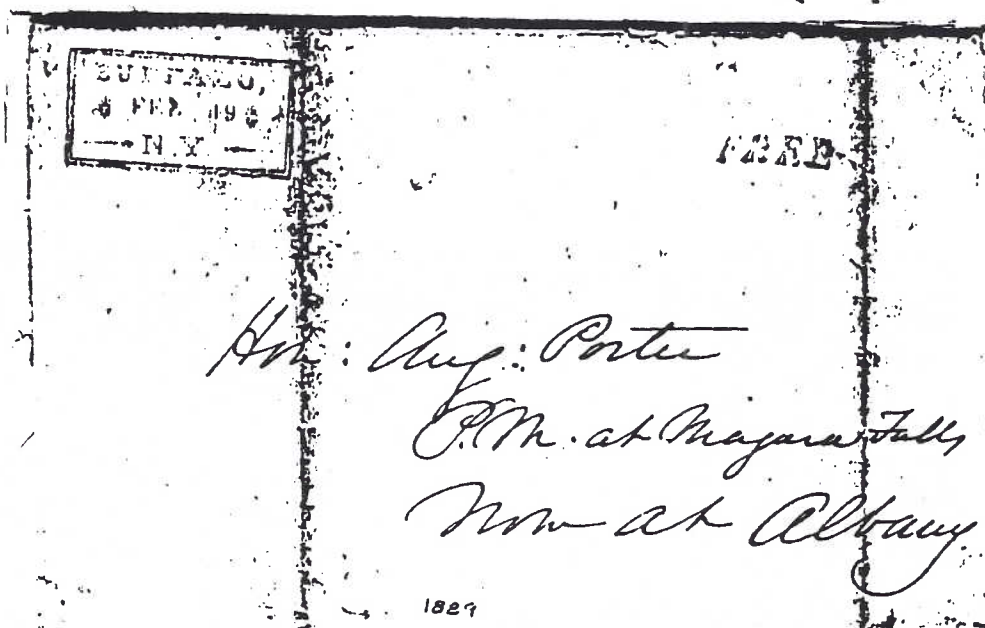 BUFFALO,
FEB. 19
N.Y
FREE
Hon: Aug: Porter
P.M. at Niagara Falls
Now at Albany
1829